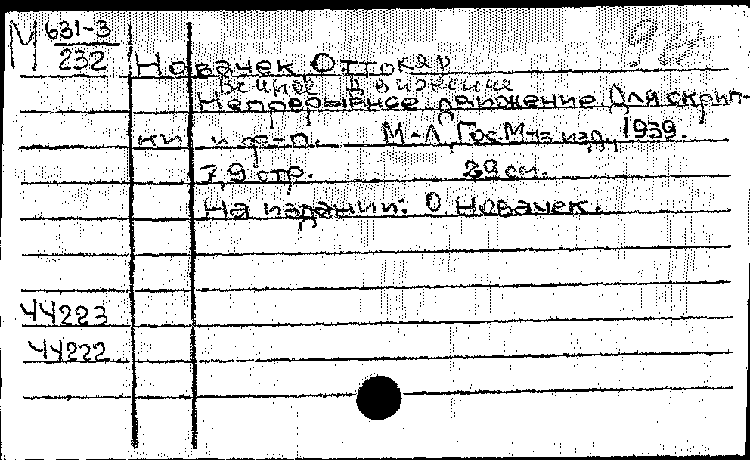 М 631-3
232
Новачек Оттокар
Вечное движение
Непрерывное движение Для скрип-
ки и ф-п. М-Л, Гос. Муз. изд., 1939.
7,9 стр. 29 см.
На издании: О Новачек.
44223
44222